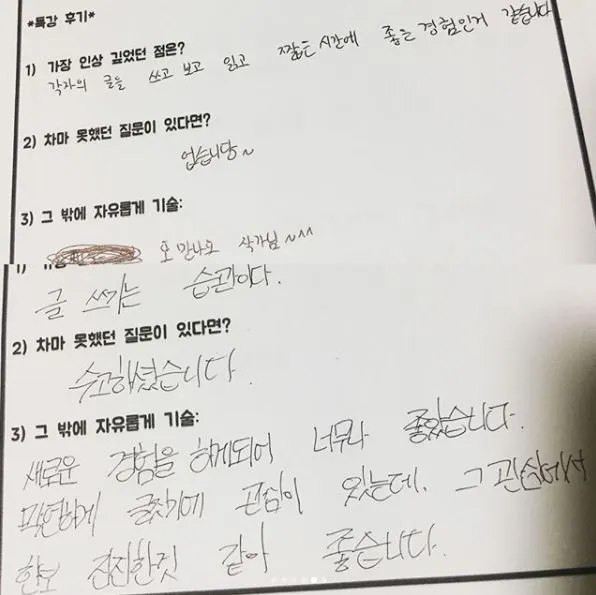 *특강 후기*
1) 가장 인상 깊었던 점은?
각자의 글을 쓰고 보고 읽고 짧은 시간에 좋은 경험인거 같습니다.
2) 차마 못했던 질문이 있다면?
없습니당~
3) 그 밖에 자유롭게 기술:
또 만나요 작가님 ~^^
글 쓰기는 습관이다.
2) 차마 못했던 질문이 있다면?
수고하셨습니다.
3) 그 밖에 자유롭게 기술:
새로운 경험을 하게되어 너무나 좋았습니다.
막연하게 글짓기에 관심이 있는데, 그 관심에서
한보 전진한것 같아 좋습니다.